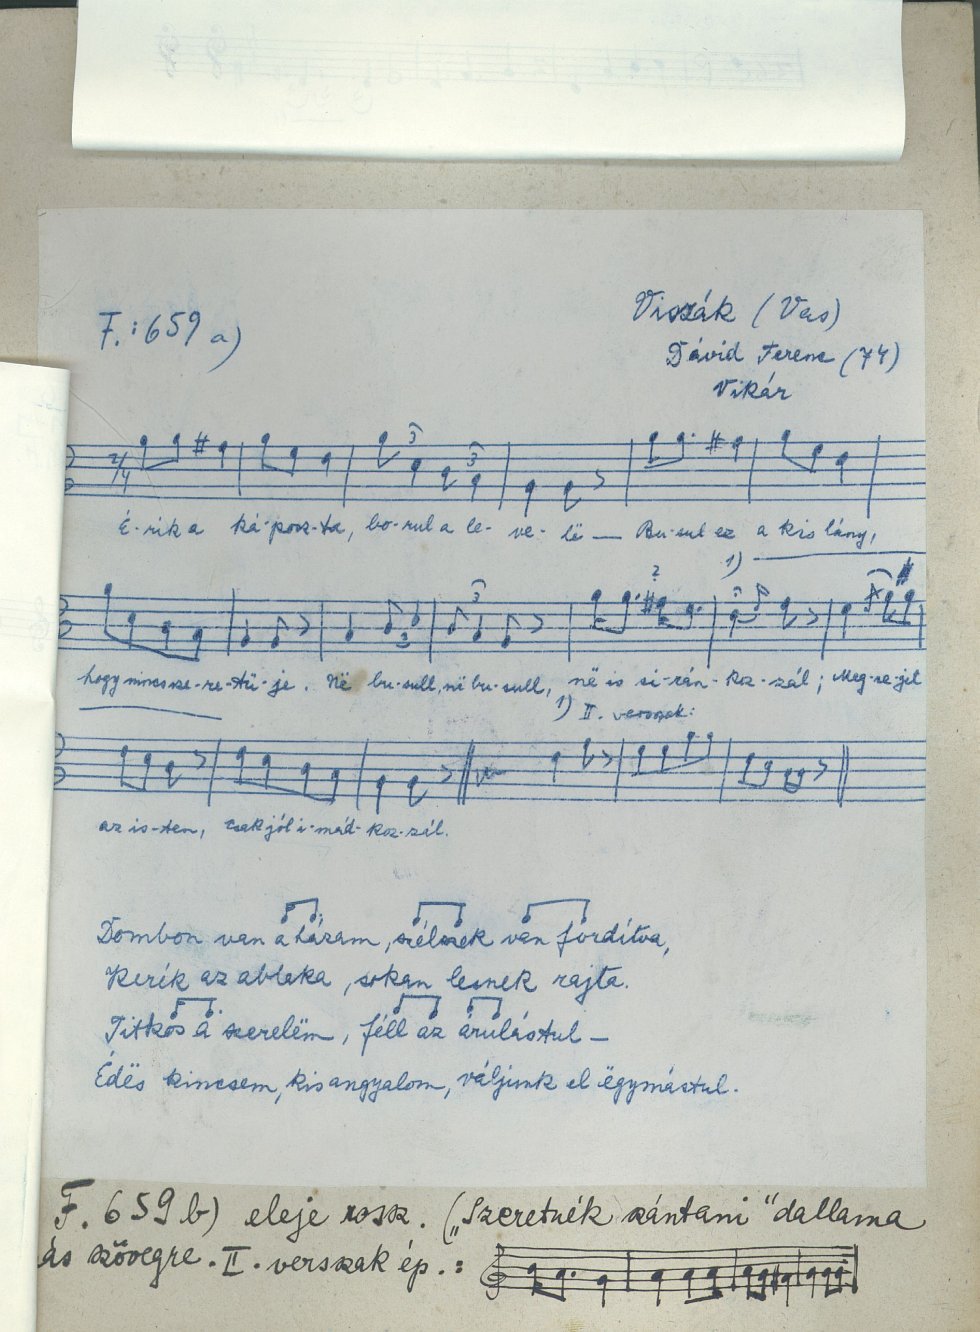 F.: 659 a)
Viszák (Vas)
Dávid Ferenc (74)
Vikár
2/4 3 3
É-rik a ká-posz-ta, bo-rul a le- ve- lë — Bu-sul ez a kis lány,
1)
3 3 ?
hogy nincs sze-re-tü-je. Në bu-sull, në bu-sull, në is si-rán-koz-zál; Meg-se-jel
1) II. verszak:
az is-ten, csak jól i-mád-koz-zál.
Dombon van a házam, szélszek van fordítva,
Kerék az ablaka, sokan lesnek rajta.
Titkos a szerelëm, féll az árulástul —
Édës kincsem, kisangyalom, váljunk el ëgymástul.
F. 659 b) eleje rossz. („Szeretnék szántani" dallama
ás szövegre. II. verszak ép.: